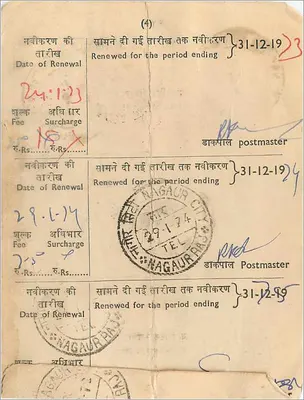 (4)
नवीकरण की तारीख
Date of Renewal
सामने दी गई तारीख तक नवीकरण
Renewed for the period ending
31-12-1973
24.1.73
शुल्क अधिभार
Fee Surcharge
रु... रु.Rs...
डाकपाल postmaster
नवीकरण की तारीख
Date of Renewal
सामने दी गई तारीख तक नवीकरण
Renewed for the period ending
31-12-1974
29.1.74
NAGAUR CITY
29.1.74
TEL
NAGAUR RAJ
शुल्क अधिभार
Fee Surcharge
रु.Rs...
डाकपाल Postmaster
नवीकरण की तारीख
Date of Renewal
सामने दी गई तारीख तक नवीकरण
Renewed for the period ending
31-12-19
TEL
NAGAUR RAJ
शुल्क अधिभार